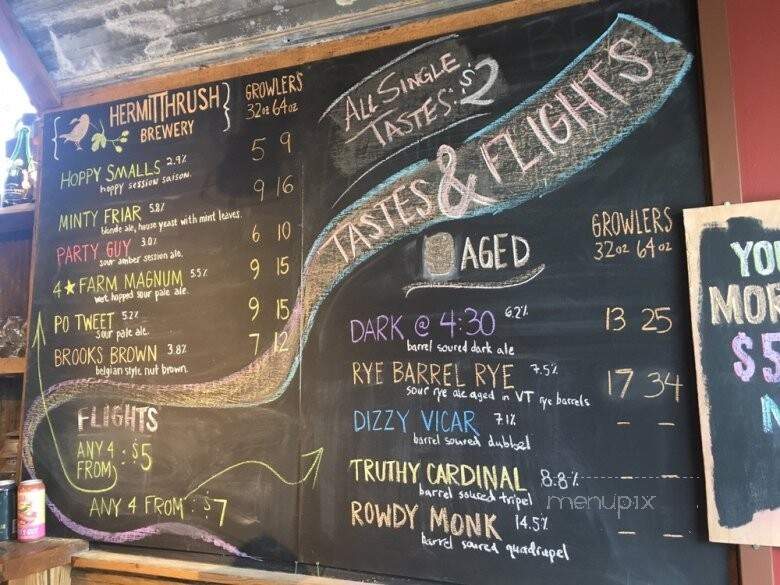 HERMIT THRUSH
BREWERY
GROWLERS
32oz 64oz
HOPPY SMALLS 2.9% 5 9
hoppy session saison.
MINTY FRIAR 5.8% 9 16
blonde ale, house yeast with mint leaves.
PARTY GUY 3.0% 6 10
sour amber session ale.
4★FARM MAGNUM 5.5% 9 15
wet hopped sour pale ale.
PO TWEET 5.2% 9 15
sour pale ale.
BROOKS BROWN 3.8% 7 12
belgian style nut brown.
FLIGHTS
ANY 4
FROM : $5
ANY 4 FROM : $7
ALL SINGLE
TASTES: $2
TASTES & FLIGHTS
AGED
GROWLERS
32oz 64oz
DARK @ 4:30 6.2% 13 25
barrel soured dark ale
RYE BARREL RYE 7.5% 17 34
sour rye ale aged in VT rye barrels
DIZZY VICAR 7.1% – –
barrel soured dubbel
TRUTHY CARDINAL 8.8% – –
barrel soured tripel
ROWDY MONK 14.5% – –
barrel soured quadrupel
menupix
YOU
MOR
$5
N